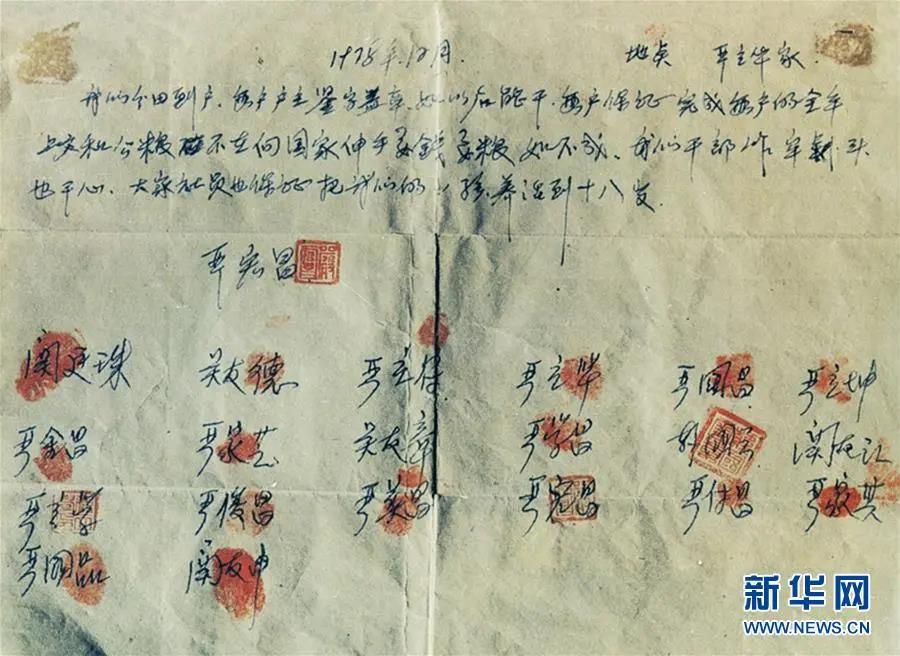 1978年.12月. 地点 严立华家.
我们分田到户.每户户主签字盖章.如以后能干.每户保证完成每户的全年
上交和公粮.不在向国家伸手要钱要粮.如不成.我们干部作牢剎头
也干心.大家社员也保证把我们的小孩.养活到十八岁.
严宏昌
关廷珠 关友德 严立符 严立华 严国昌 严立坤
严金昌 严家芝 关友章 严学昌 韩国云 关友江
严立学 严俊昌 严美昌 严宏昌 严付昌 严家其
严国品 关友申
新华网
WWW.NEWS.CN